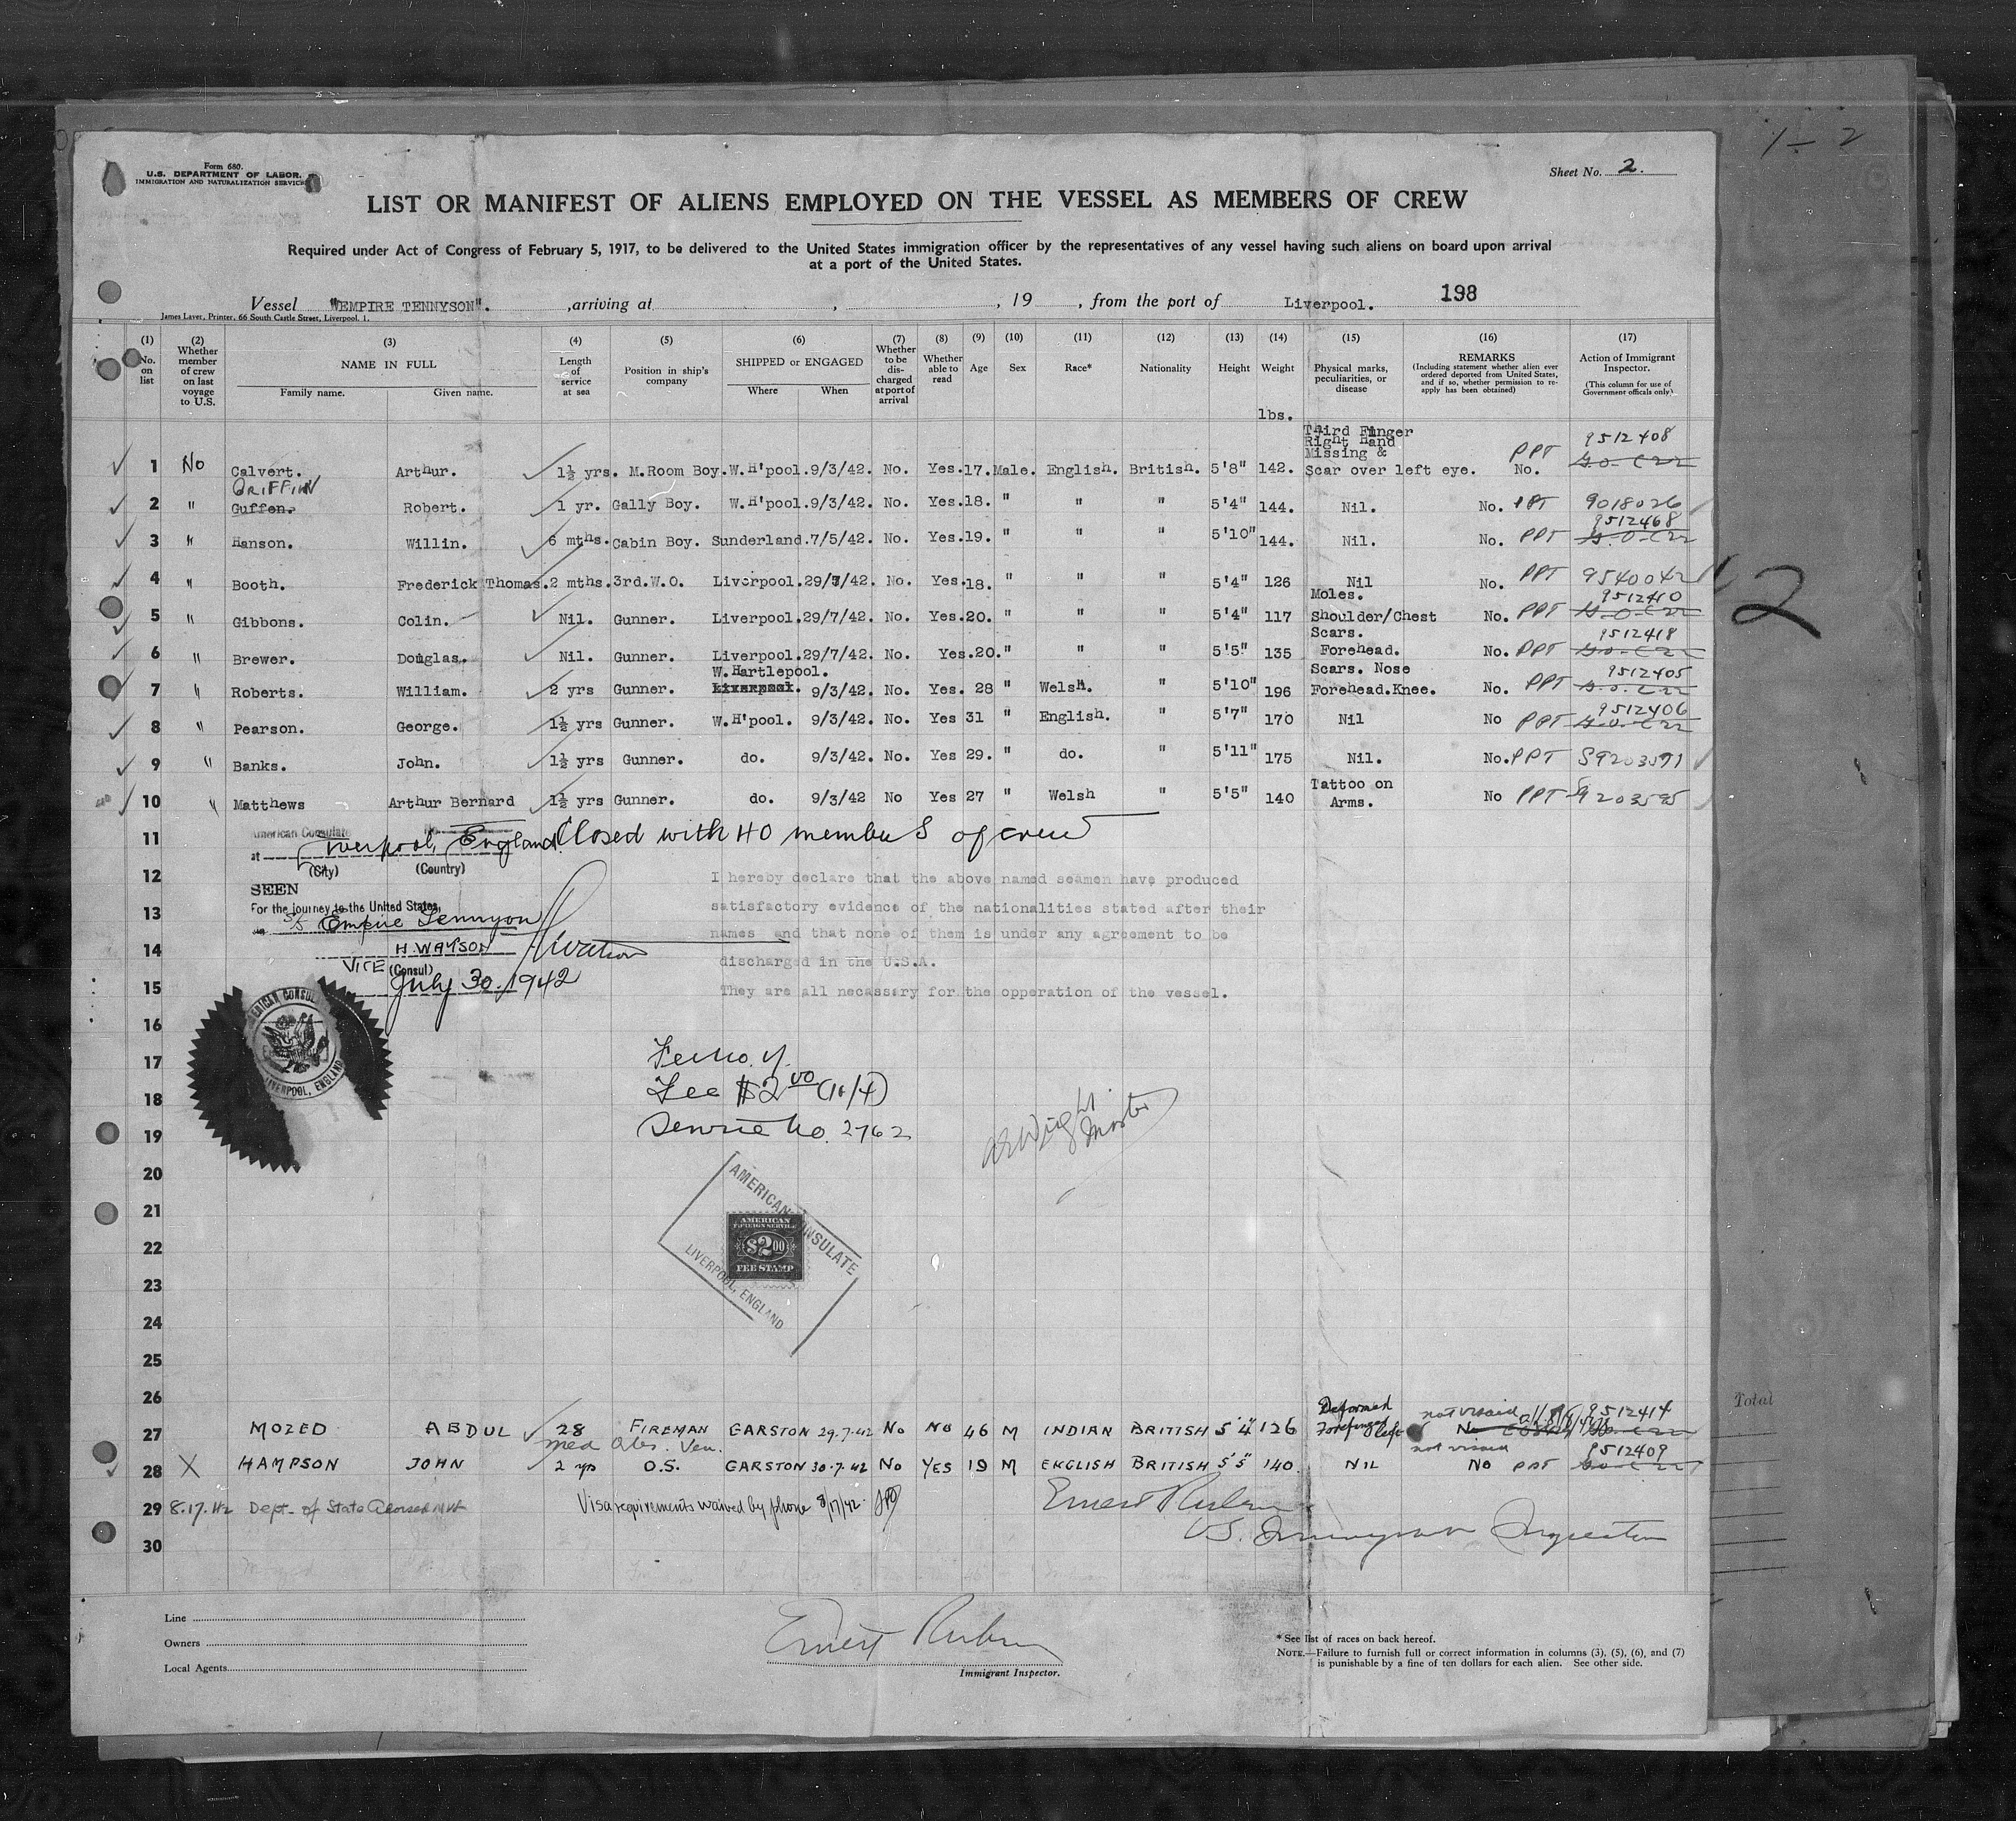 1 – 2
Form 680.
U.S. DEPARTMENT OF LABOR.
IMMIGRATION AND NATURALIZATION SERVICE
Sheet No. 2.
LIST OR MANIFEST OF ALIENS EMPLOYED ON THE VESSEL AS MEMBERS OF CREW
Required under Act of Congress of February 5, 1917, to be delivered to the United States immigration officer by the representatives of any vessel having such aliens on board upon arrival
at a port of the United States.
Vessel "EMPIRE TENNYSON". , arriving at , , 19 , from the port of Liverpool. 198
James Laver, Printer, 66 South Castle Street, Liverpool, 1.
(1) No. on list
(2) Whether member of crew on last voyage to U.S.
(3) NAME IN FULL Family name. Given name.
(4) Length of service at sea
(5) Position in ship's company
(6) SHIPPED or ENGAGED Where When
(7) Whether to be discharged at port of arrival
(8) Whether able to read
(9) Age
(10) Sex
(11) Race*
(12) Nationality
(13) Height
(14) Weight
(15) Physical marks, peculiarities, or disease
(16) REMARKS (Including statement whether alien ever ordered deported from United States, and if so, whether permission to reapply has been obtained)
(17) Action of Immigrant Inspector. (This column for use of Government officials only)
lbs.
1 No Calvert. Arthur. 1½ yrs. M.Room Boy. W.H'pool. 9/3/42. No. Yes. 17. Male. English. British. 5'8" 142. Third Finger Right Hand Missing & Scar over left eye. No. PPT 9512408
2 " GRIFFIN Guffen. Robert. 1 yr. Gally Boy. W.H'pool. 9/3/42. No. Yes. 18. " " " 5'4" 144. Nil. No. PPT 9018026
3 " Hanson. Willin. 6 mths. Cabin Boy. Sunderland. 7/5/42. No. Yes. 19. " " " 5'10" 144. Nil. No. PPT 9512468
4 " Booth. Frederick Thomas. 2 mths. 3rd.W.O. Liverpool. 29/7/42. No. Yes. 18. " " " 5'4" 126 Nil No. PPT 9540042
5 " Gibbons. Colin. Nil. Gunner. Liverpool. 29/7/42. No. Yes. 20. " " " 5'4" 117 Moles. Shoulder/Chest No. PPT 9512410
6 " Brewer. Douglas. Nil. Gunner. Liverpool. 29/7/42. No. Yes. 20. " " " 5'5" 135 Scars. Forehead. No. PPT 9512418
7 " Roberts. William. 2 yrs Gunner. W. Hartlepool. 9/3/42. No. Yes. 28 " Welsh. " 5'10" 196 Scars. Nose Forehead.Knee. No. PPT 9512405
8 " Pearson. George. 1½ yrs Gunner. W.H'pool. 9/3/42. No. Yes 31 " English. " 5'7" 170 Nil No PPT 9512406
9 " Banks. John. 1½ yrs Gunner. do. 9/3/42. No. Yes 29. " do. " 5'11" 175 Nil. No. PPT
10 " Matthews Arthur Bernard 1½ yrs Gunner. do. 9/3/42 No Yes 27 " Welsh " 5'5" 140 Tattoo on Arms. No PPT 9203595
2
11
American Consulate
at Liverpool, England Closed with 40 members of crew
(City) (Country)
12
SEEN
I hereby declare that the above named seamen have produced
For the journey to the United States,
13
satisfactory evidence of the nationalities stated after their
S/S Empire Tennyson
names and that none of them is under any agreement to be
14
H. WATSON HWatson
VICE (Consul)
discharged in the U.S.A.
July 30, 1942
15
They are all necassary for the opperation of the vessel.
AMERICAN CONSULATE
LIVERPOOL, ENGLAND
16
17
18
Fee $2.00 (10/4)
Service No. 2762
19
Master
20
21
AMERICAN CONSULATE
LIVERPOOL, ENGLAND
AMERICAN
FOREIGN SERVICE
$2.00
FEE STAMP
22
23
24
25
26
Total
27 MOZED ABDUL 28 FIREMAN GARSTON 29.7.42 No No 46 M INDIAN BRITISH 5'4" 126 Deformed Forefinger left not visaed 9512414
28 X HAMPSON JOHN 2 yrs O.S. GARSTON 30.7.42 No YES 19 M ENGLISH BRITISH 5'5" 140. NIL not visaed No PPT 9512409
29 8.17.42 Dept. of State Visa requirements waived by phone 8/17/42. Ernest Rubin
U.S. Immigrant Inspector
30
Line
Owners
Local Agents
Ernest Rubin
Immigrant Inspector.
* See list of races on back hereof.
NOTE.—Failure to furnish full or correct information in columns (3), (5), (6), and (7)
is punishable by a fine of ten dollars for each alien. See other side.